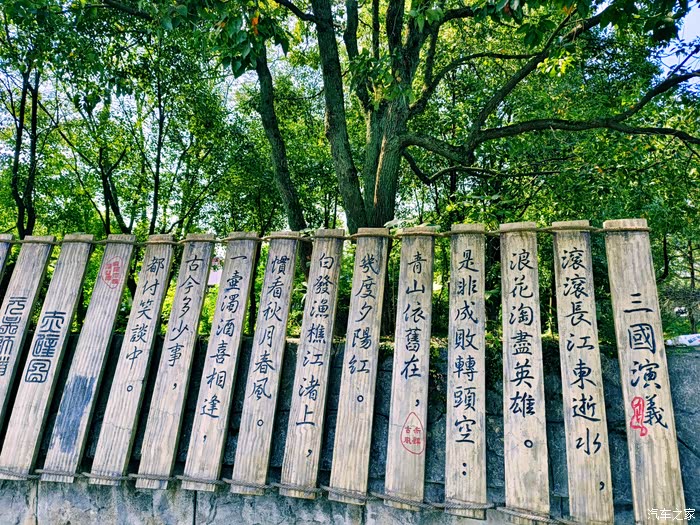 三國演義
滾滾長江東逝水，
浪花淘盡英雄。
是非成敗轉頭空：
青山依舊在，
幾度夕陽紅。
白發漁樵江渚上，
慣看秋月春風。
一壺濁酒喜相逢，
古今多少事，
都付笑談中。
汽车之家